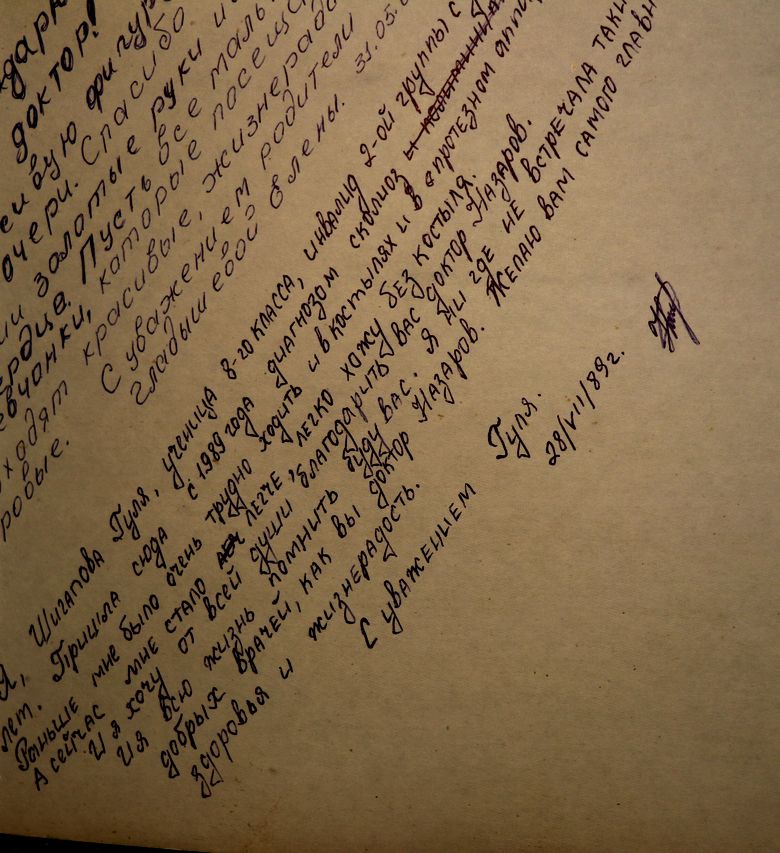 доктор!
фигур
Спасибо
золотые руки и
Пусть все маль
которые посеща
красивые, жизнерадо
С уважением родители
Гладышевой Елены. 31.05.
Я, Шигапова Гуля, ученица 8-го класса, инвалид 2-ой группы с
лет. Пришла сюда с 1989 года диагнозом сколиоз
Раньше мне было очень трудно ходить и в костылях и в протезном аппар
А сейчас мне стало леч легче, легко хожу без костыля.
И я хочу от всей души благодарить вас доктор Назаров.
И я всю жизнь помнить буду вас. Я ни где не встречала таки
добрых врачей, как вы доктор Назаров. Желаю вам самого главн
здоровья и жизнерадость.
С уважением Гуля.
28/VII/89г.